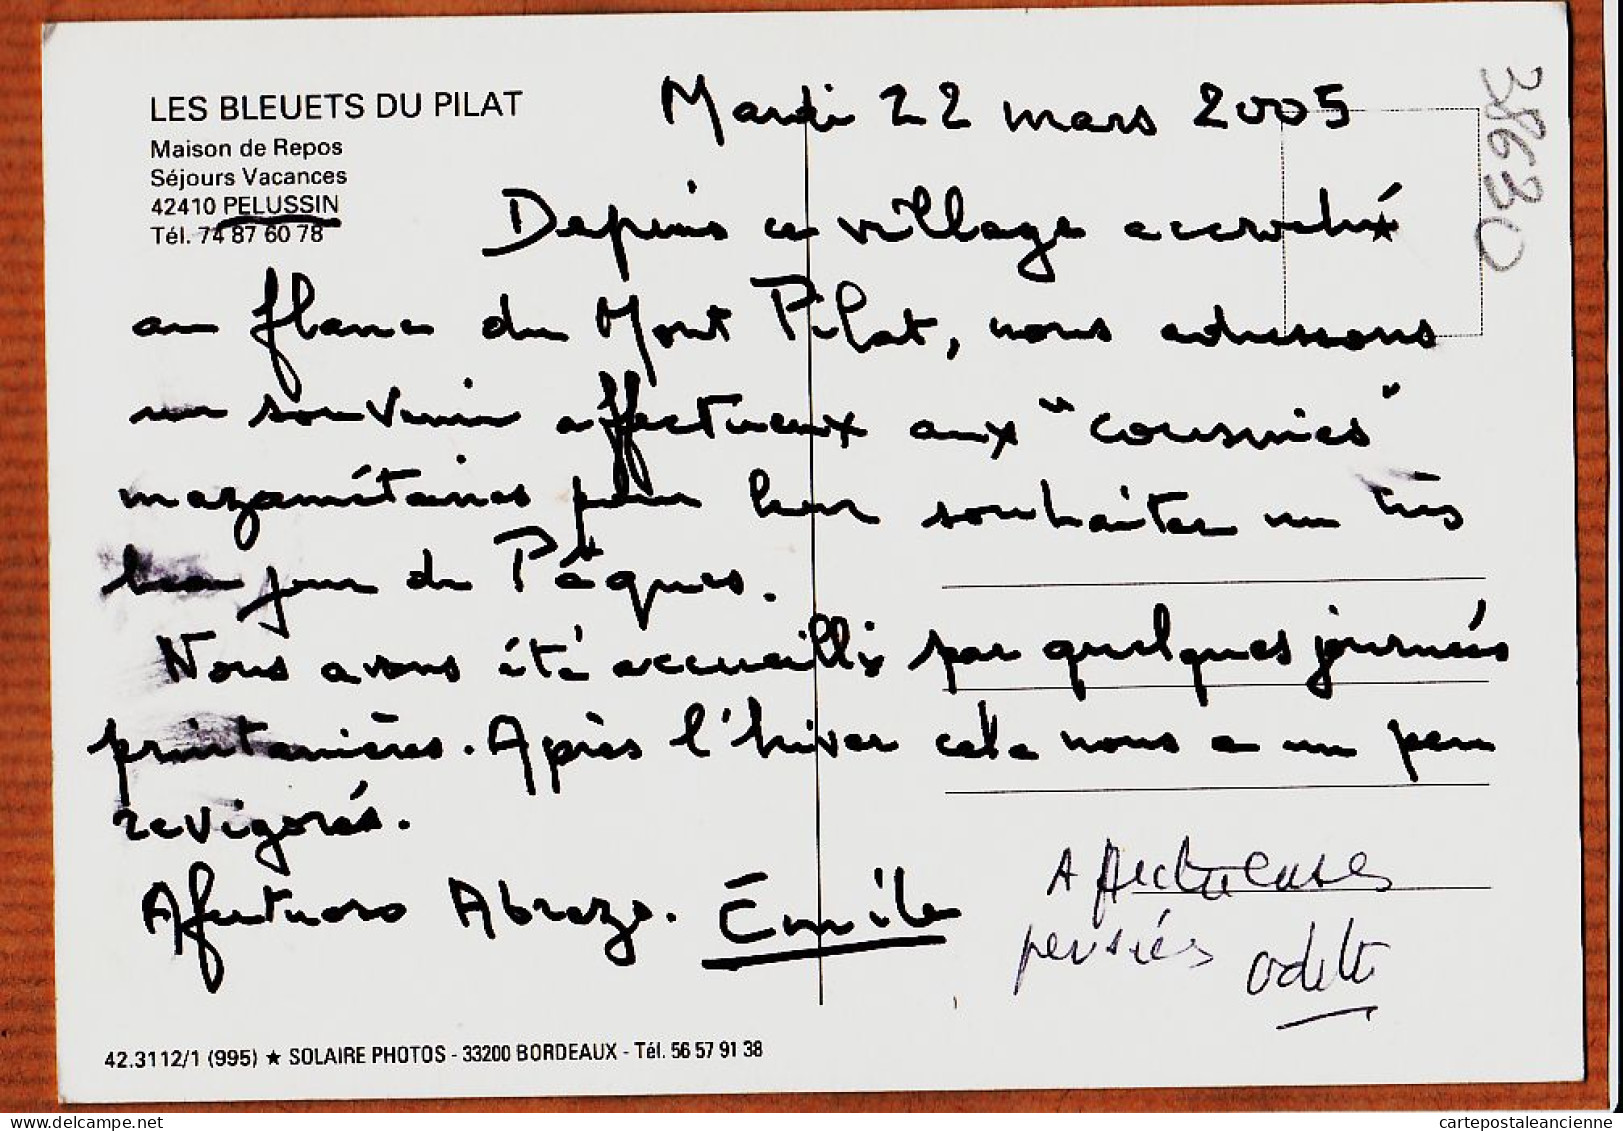 LES BLEUETS DU PILAT
Maison de Repos
Séjours Vacances
42410 PELUSSIN
Tél. 74 87 60 78
38630
Mardi 22 mars 2005
Depuis ce village accroché
au flanc du Mont Pilat, nous adressons
un souvenir affectueux aux "cousines"
mazamétaines pour leur souhaiter un très
bon jour de Pâques.
Nous avons été accueillis par quelques journées
printanières. Après l'hiver cela nous a un peu
revigorés.
Afectuoso Abrazo. Émile
Affectueuses
pensées Odette
42.3112/1 (995) ★ SOLAIRE PHOTOS - 33200 BORDEAUX - Tél. 56 57 91 38
cartepostaleancienne